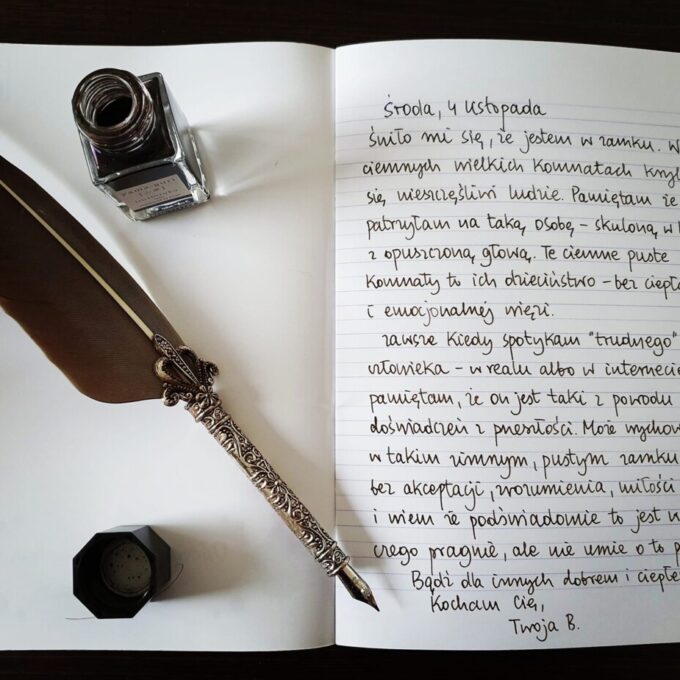 środa, 4 listopada
Śniło mi się, że jestem w zamku. W
ciemnych wielkich komnatach kryl
się nieszczęśliwi ludzie. Pamiętam że
patrzyłam na taką osobę - skuloną, w
z opuszczoną głową. Te ciemne puste
komnaty to ich dzieciństwo - bez ciepła
i emocjonalnej więzi.
Zawsze kiedy spotykam "trudnego"
człowieka - w realu albo w internecie
pamiętam, że on jest taki z powodu
doświadczeń z przeszłości. Może wychow
w takim zimnym, pustym zamku
bez akceptacji, zrozumienia, miłości
i wiem że podświadomie to jest
czego pragnie, ale nie umie o to p
Bądź dla innych dobrem i ciepłe
Kocham Cię,
Twoja B.